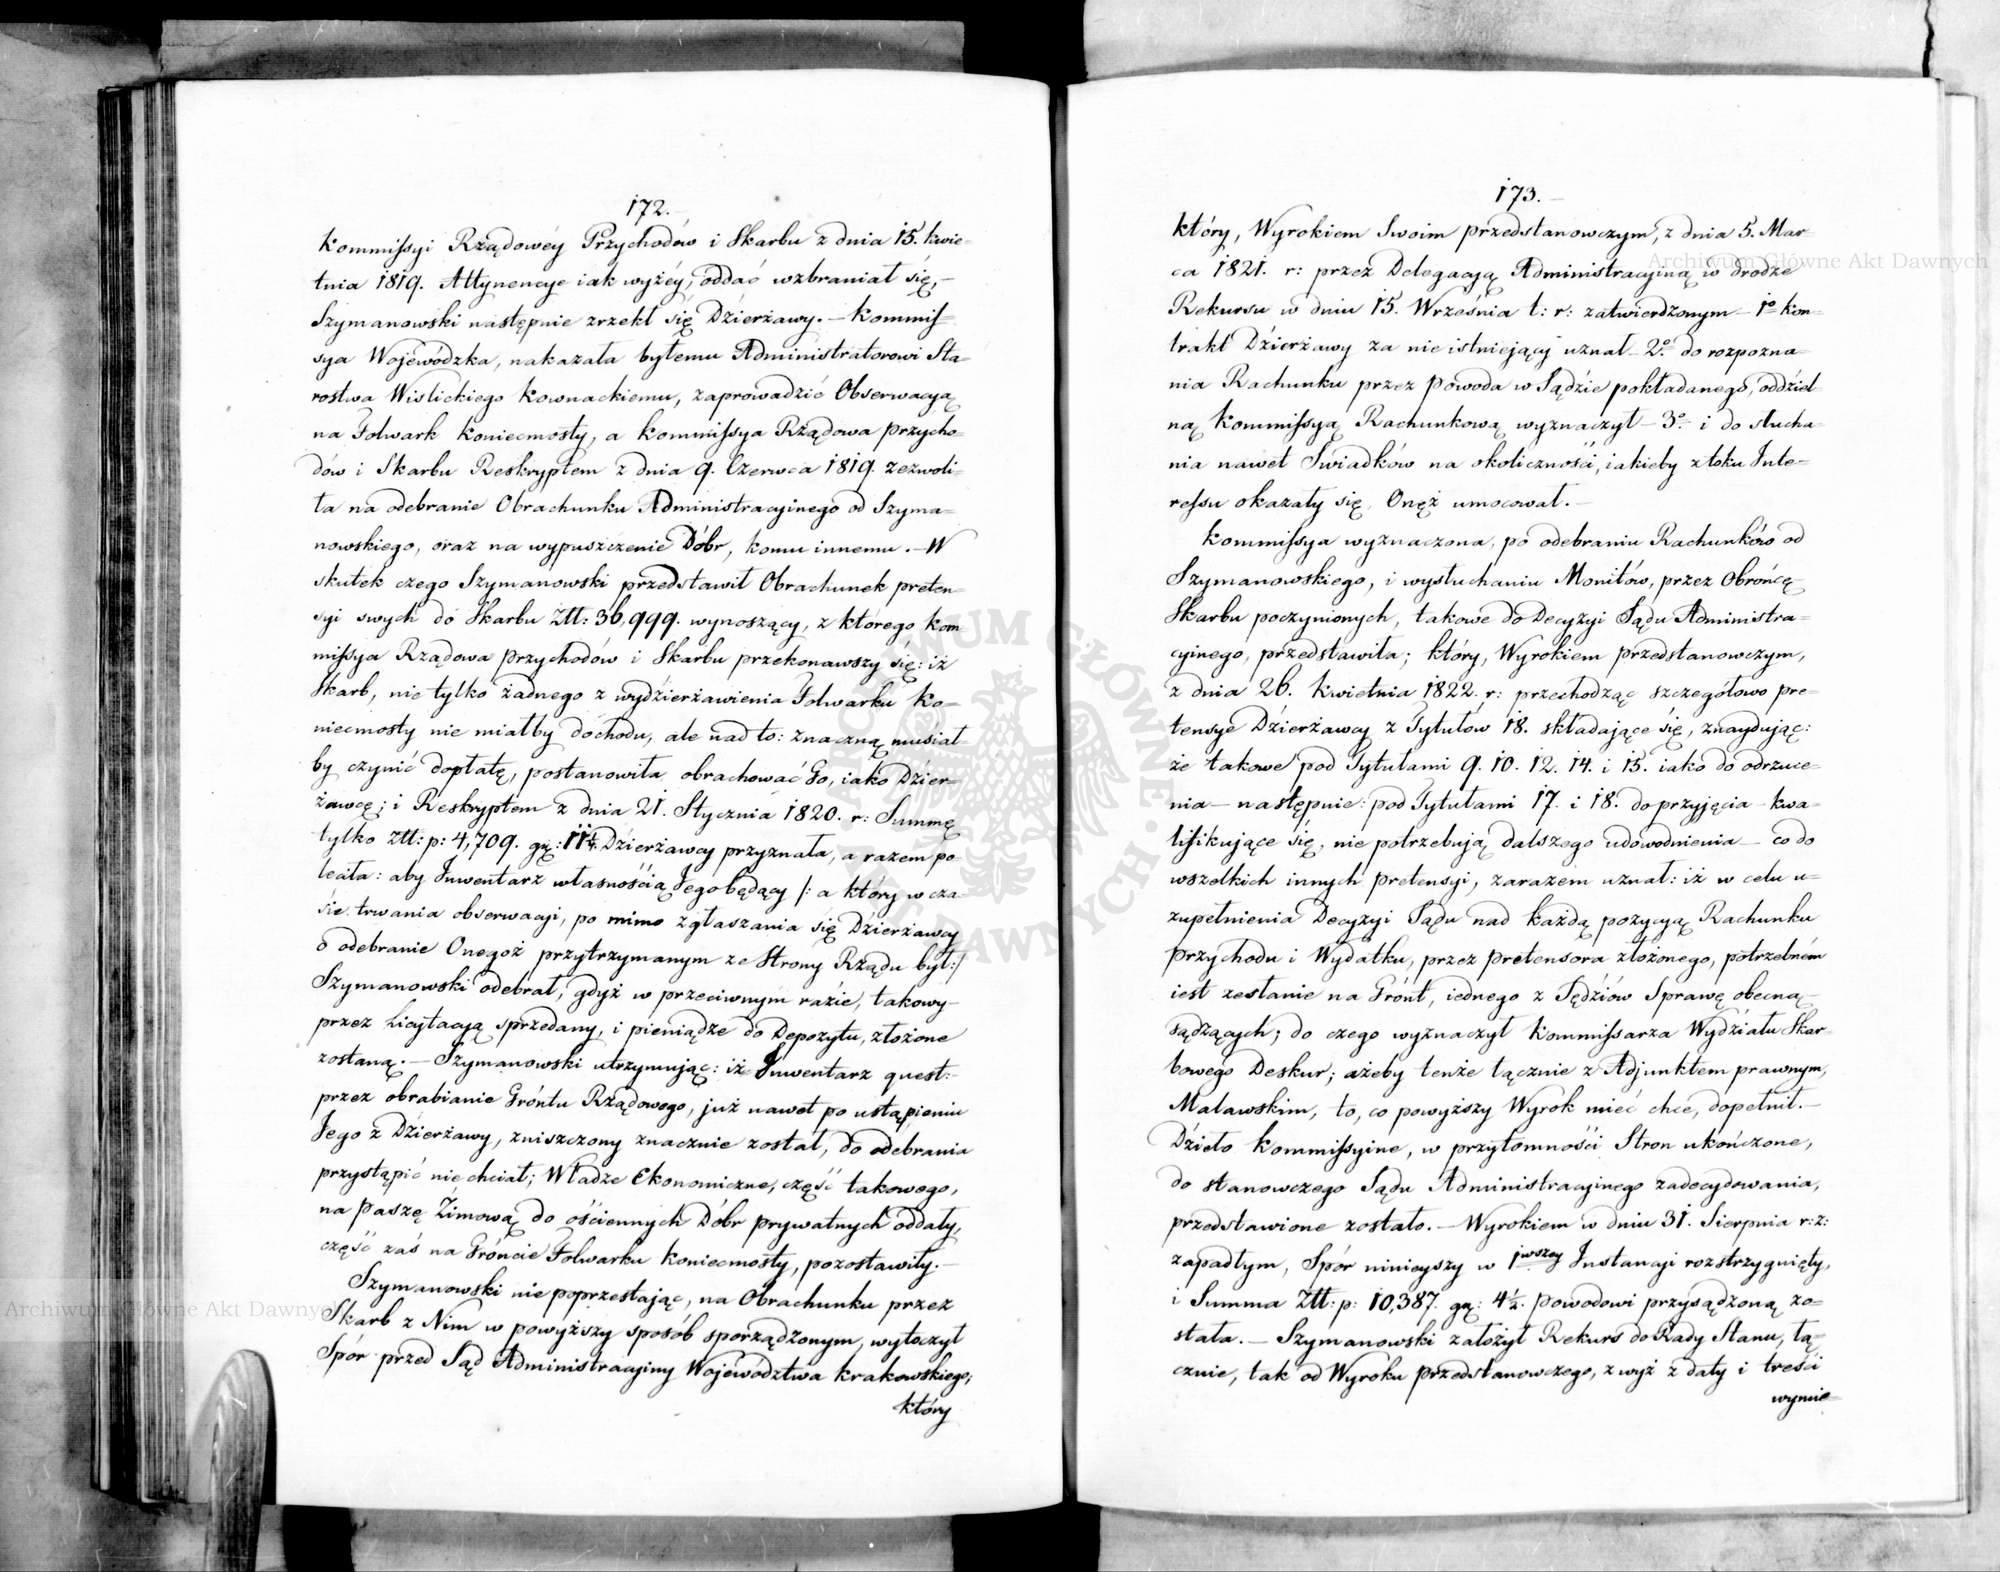 172.
Kommissyi Rządowéy Przychodów i Skarbu z dnia 15. kwie=
tnia 1819. Attynencye iak wyżéy, oddać wzbraniał się, –
Szymanowski następnie zrzekł się Dzierżawy. – Kommis=
sya Wojewódzka, nakazała byłemu Administratorowi Sta=
rostwa Wislickiego Kownackiemu, zaprowadzić Obserwacyą
na Folwark Koniecmosty, a Kommissya Rządowa Przycho=
dów i Skarbu Reskryptem z dnia 9. Czerwca 1819. zezwoli=
ła na odebranie Obrachunku Administracyinego od Szyma=
nowskiego, oraz na wypuszczenie Dóbr, komu innemu. – W
skutek czego Szymanowski przedstawił Obrachunek preten=
syi swych do Skarbu Złł: 36,999. wynoszący, z którego Kom
missya Rządowa Przychodów i Skarbu przekonawszy się: iż
Skarb, nie tylko żadnego z wydzierżawienia Folwarku Ko=
niecmosty nie miałby dochodu, ale nad to: znaczną musiał
by czynić dopłatę, postanowiła obrachować Go, iako Dzier=
żawcę; i Reskryptem z dnia 21. Stycznia 1820. r: Summę
tylko Złł: p: 4,709. gr: 11¼ Dzierżawcy przyznała, a razem po
leciła: aby Inwentarz własnością Jego będący /: a który w cza=
sie trwania obserwacyi, po mimo zgłaszania się Dzierżawcy
o odebranie Onegoż przytrzymanym ze strony Rządu był:/
Szymanowski odebrał, gdyż w przeciwnym razie, takowy –
przez Licytacyą sprzedany, i pieniądze do Depozytu, złożone
zostaną. – Szymanowski utrzymując: iż Inwentarz quest: –
przez obrabianie Gróntu Rządowego, już nawet po ustąpieniu
Jego z Dzierżawy, zniszczony znacznie został, do odebrania
przystąpić nie chciał; Władze Ekonomiczne, część takowego,
na Paszę Zimową do ościennych Dóbr prywatnych oddały,
część zaś na Gróncie Folwarku Koniecmosty, pozostawiły. –
Szymanowski nie poprzestając, na Obrachunku przez
Skarb z Nim w powyższy sposób sporządzonym, wytoczył
Spór przed Sąd Administracyiny Województwa Krakowskiego;
który
173.
który, Wyrokiem Swoim przedstanowczym, z dnia 5. Mar=
ca 1821. r: przez Delegacyą Administracyiną w drodze
Rekursu w dniu 15. Września t: r: zatwierdzonym – 1º kon=
trakt Dzierżawy za nie istniejący uznał – 2º do rozpozna=
nia Rachunku przez Powoda w Sądzie pokładanego, oddziel
ną Kommissyą Rachunkową wyznaczył – 3º i do słucha=
nia nawet Swiadków na okoliczności, iakieby z toku Inte=
ressu okazały się, Onęż umocował. –
Kommissya wyznaczona, po odebraniu Rachunków od
Szymanowskiego, i wysłuchaniu Monitów, przez Obrońcę
Skarbu poczynionych, takowe do Decyzyi Sądu Administra=
cyinego, przedstawiła; który, Wyrokiem przedstanowczym,
z dnia 26. Kwietnia 1822. r: przechodząc szczegółowo pre=
tensye Dzierżawcy z Tytułów 18. składające się, znaydując:
że takowe pod Tytułami 9. 10. 12. 14. i 15. iako do odrzuce=
nia – następnie: pod Tytułami 17. i 18. do przyjęcia – kwa=
lifikujące się, nie potrzebują dalszego udowodnienia – co do
wszelkich innych pretensyi, zarazem uznał: iż w celu u=
zupełnienia Decyzyi Sądu nad każdą pozycyą Rachunku
Przychodu i Wydatku, przez Pretensora złożonego, potrzebném
iest zesłanie na Grónt, iednego z Sędziów Sprawę obecną –
sądzących; do czego wyznaczył Kommissarza Wydziału Skar=
bowego Deskur; ażeby tenże łącznie z Adjunktem prawnym,
Malawskim, to, co powyższy Wyrok mieć chce, dopełnił. –
Dzieło Kommissyine, w przytomności Stron ukończone,
do stanowczego Sądu Administracyinego zadecydowania,
przedstawione zostało. – Wyrokiem w dniu 31. Sierpnia r: z:
zapadłym, Spór ninieyszy w 1wszey Instancyi rozstrzygnięty,
i Summa Złł: p: 10,387. gr: 4½. Powodowi przysądzoną zo=
stała. – Szymanowski założył Rekurs do Rady Stanu, łą=
cznie, tak od Wyroku przedstanowczego, z wyż z daty i treści
wymie=